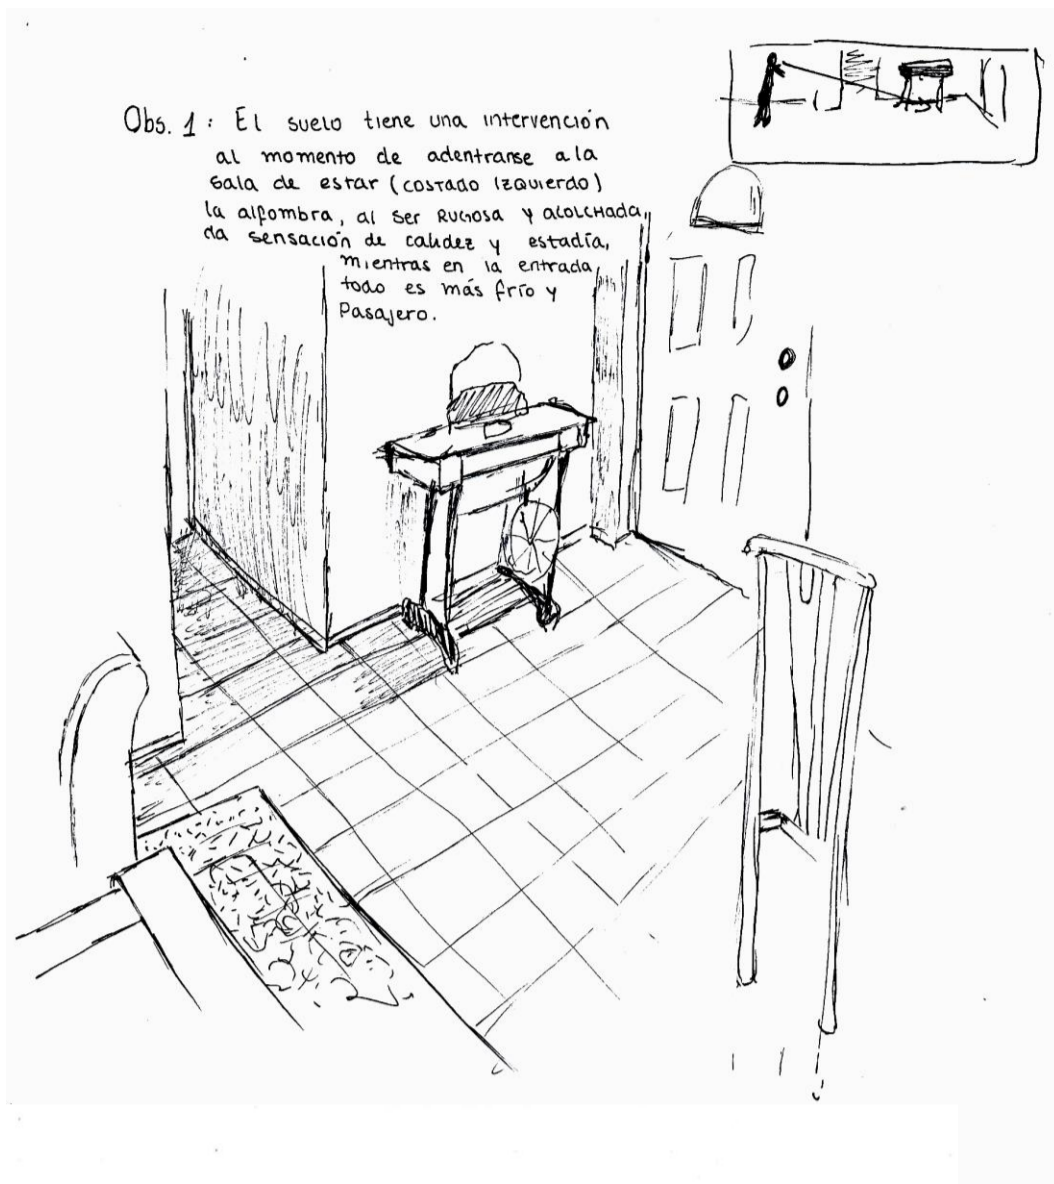 Obs. 1: El suelo tiene una intervención
al momento de adentrarse a la
sala de estar (costado izquierdo)
la alfombra, al ser RUGOSA y ACOLCHADA,
da sensación de calidez y estadía,
mientras en la entrada
todo es más frío y
Pasajero.